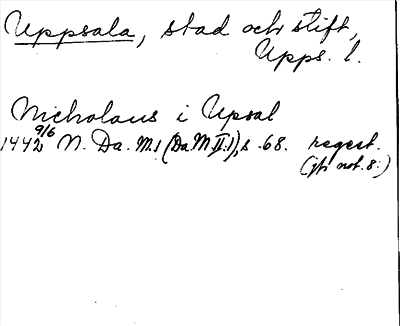 Uppsala, stad och stift,
Upps. l.
Nicholaus i Upsal
1442 9/6 N. Da. M. 1 (Da. M II:1), s. 68. regest.
(jfr not. 8.)